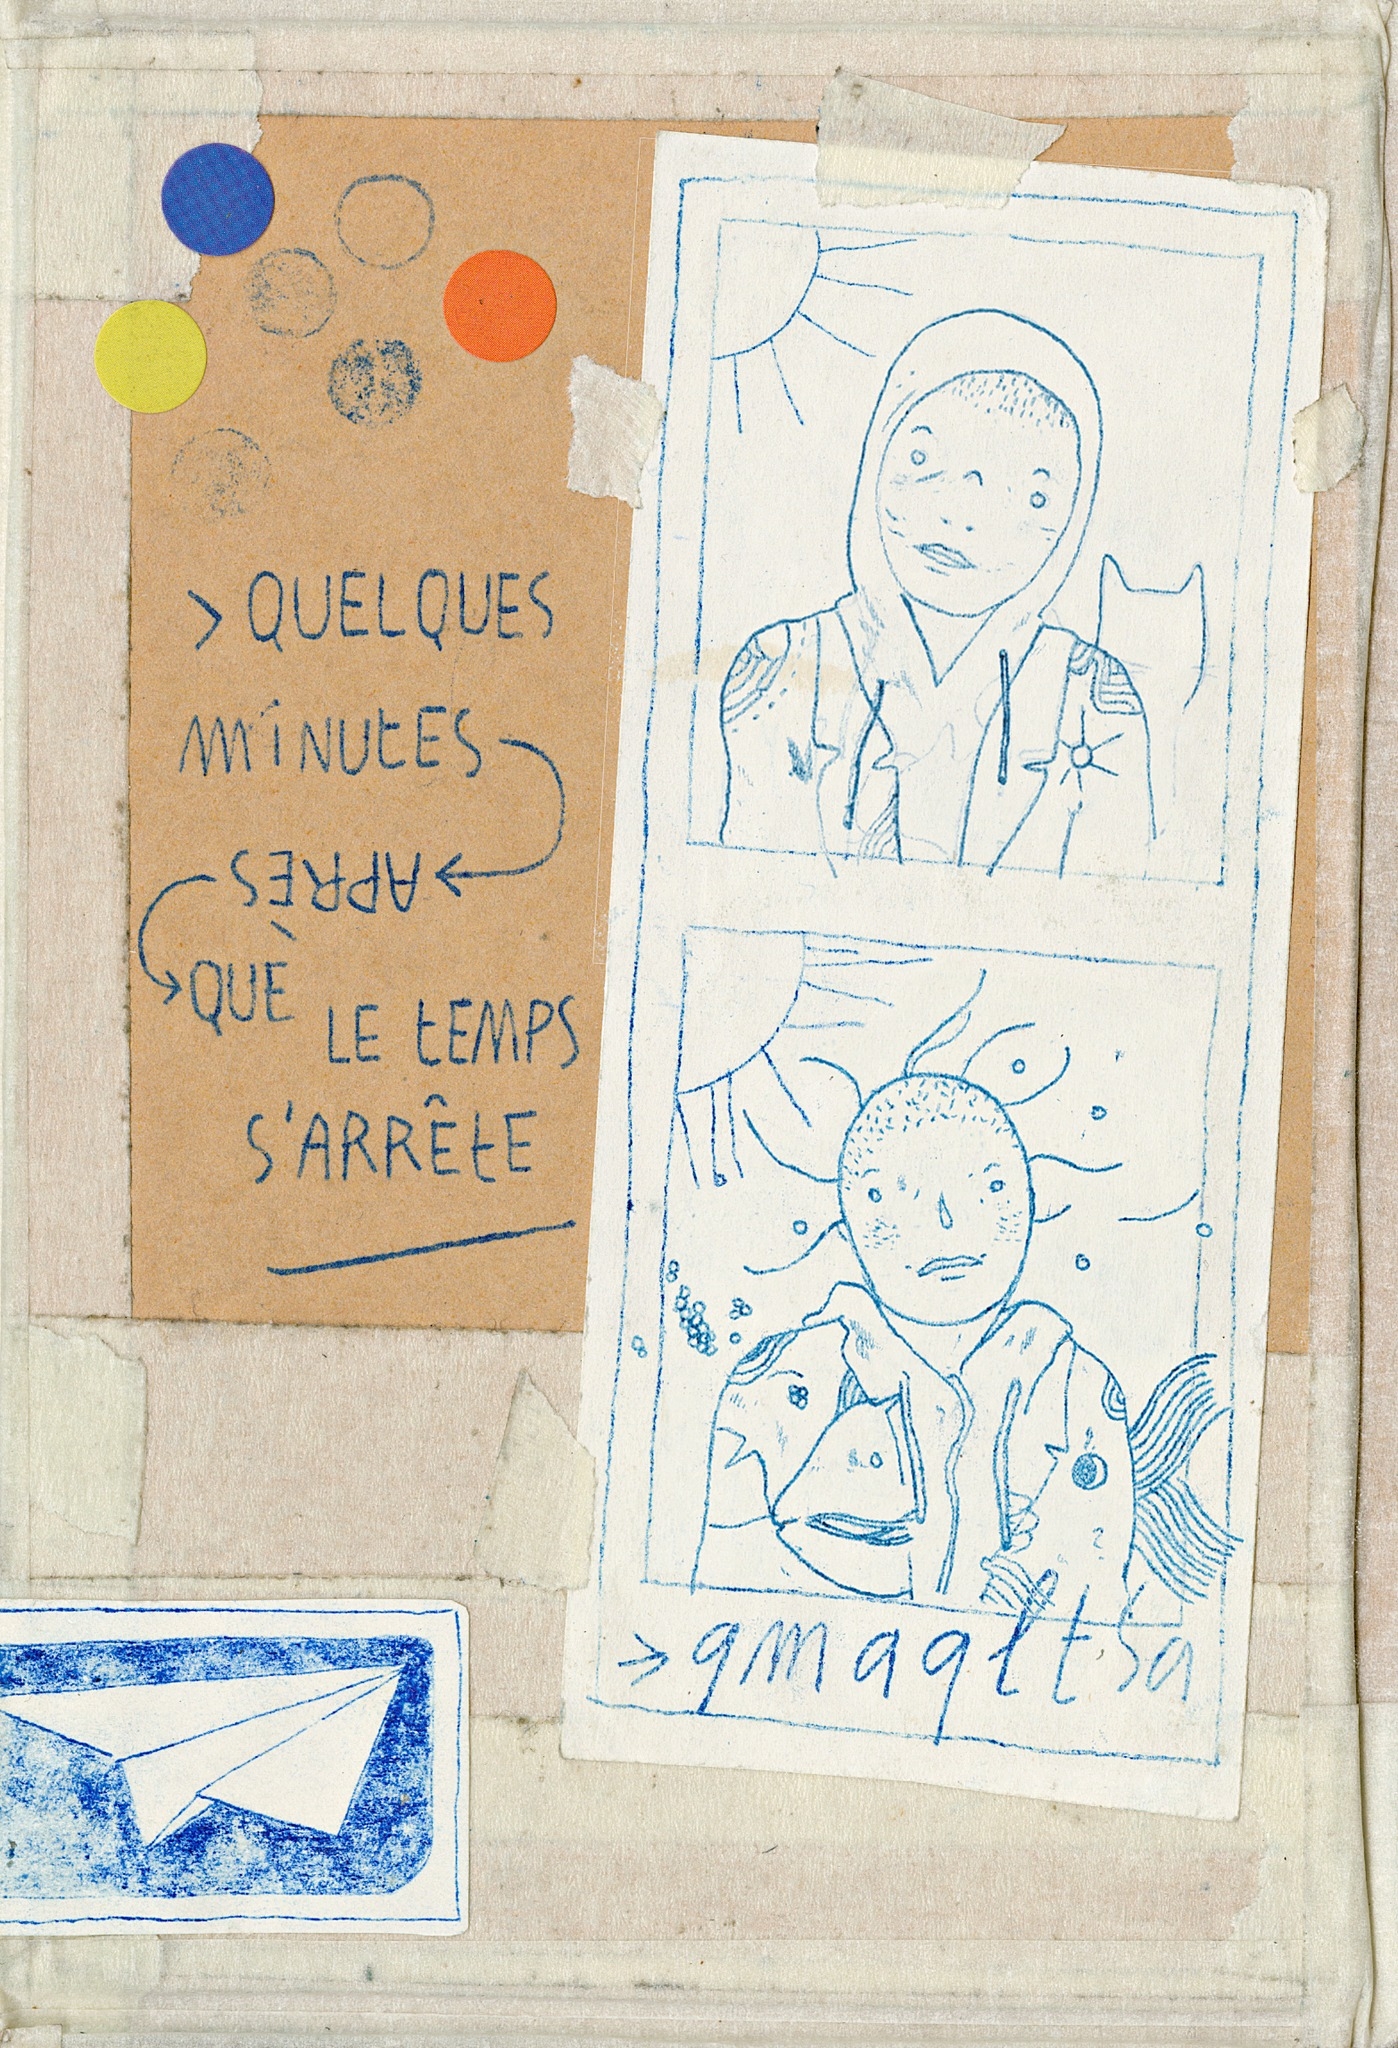 > QUELQUES
MINUTES
APRÈS
QUE
LE TEMPS
S'ARRÊTE
→ qmaqltsa